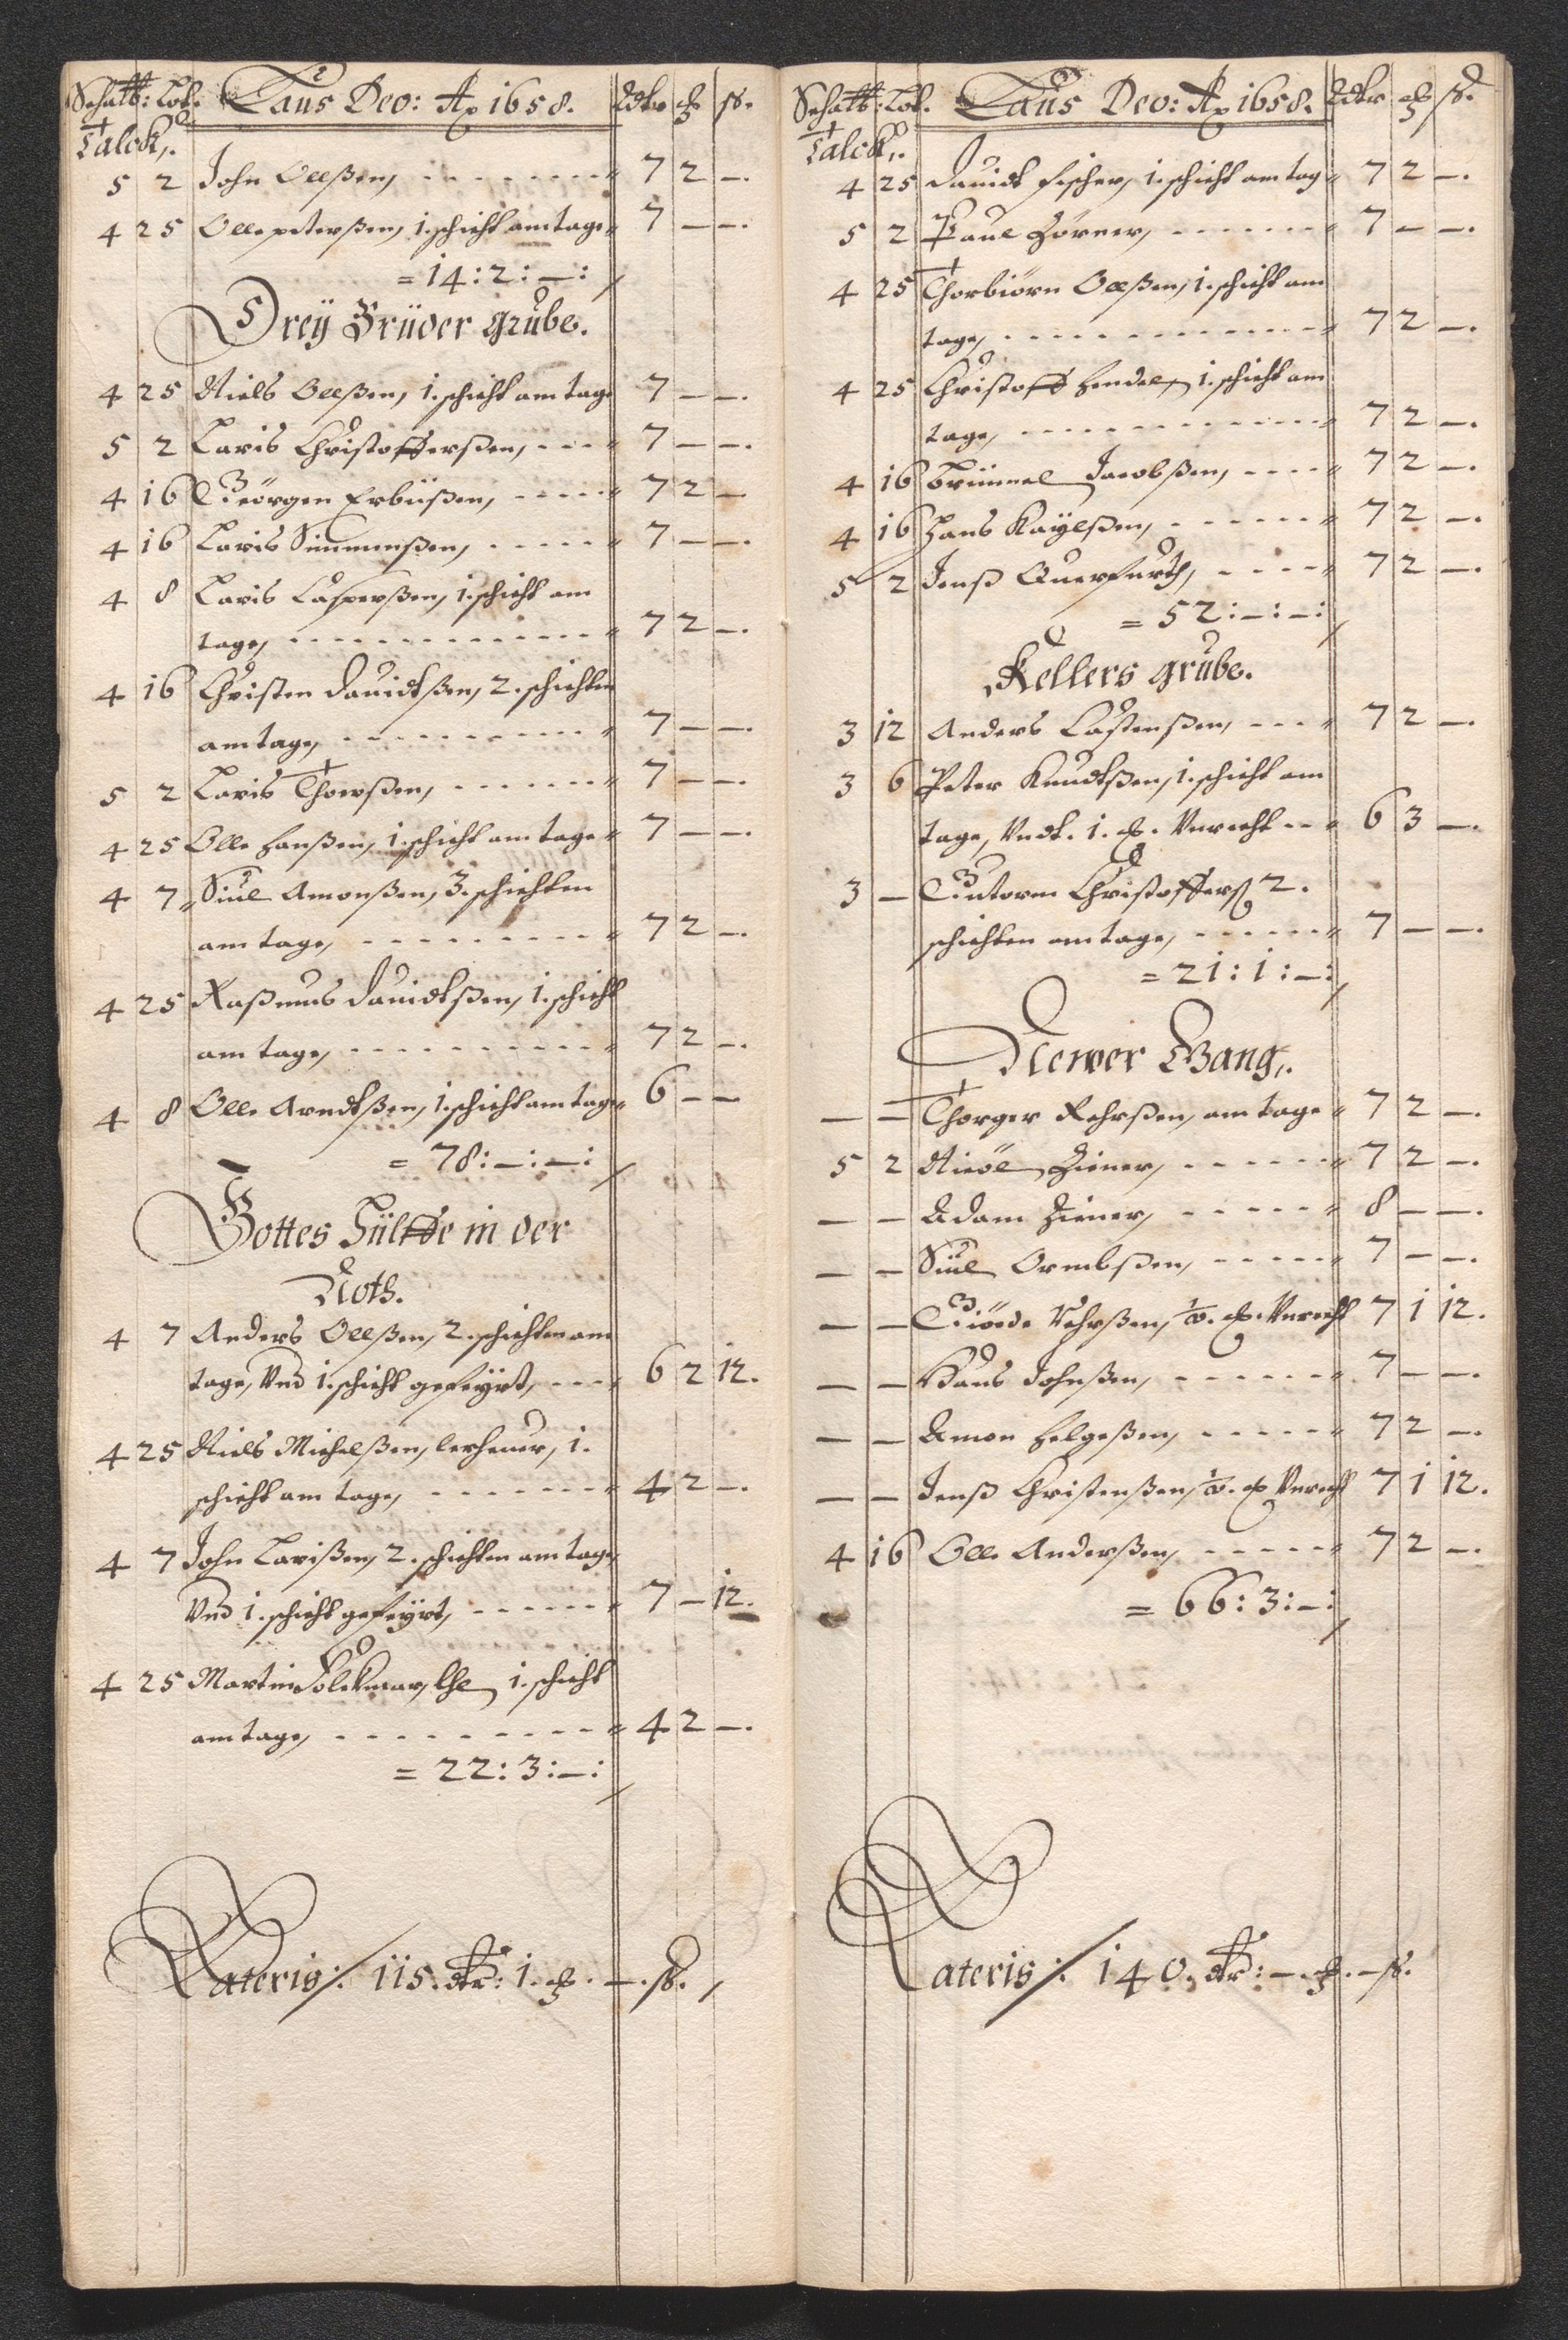 Schatt: Lod. Laus Deo: Ao 1658. Rdlr ꝗ ß.
Talck,.
5 2 John Olleßen, 7 2 –.
4 25 Olle peterßen, 1. schicht am tage 7 – –.
= 14 : 2 : – :
Dreÿ Brüder grube.
4 25 Niels Olleßen, 1. schicht am tage 7 – –.
5 2 Laris Christofferßen, 7 – –.
4 16 Geörgen Erbüßen, 7 2 –
4 16 Laris Simmenßen, 7 – –.
4 8 Laris Casperßen, 1. schicht am
tage, 7 2 –.
4 16 Christen Davidtßen, 2. schichten
am tage, 7 – –.
5 2 Laris Thorßen, 7 – –.
4 25 Olle Hanßen, 1. schicht am tage 7 – –.
4 7 Siul Amonßen, 3. schichten
am tage, 7 2 –.
4 25 Raßmus Davidtßen, 1. schicht
am tage, 7 2 –.
4 8 Olle Arndtßen, 1. schicht am tage 6 – –
= 78 : – : – :
Gottes Hülffe in der
Noth.
4 7 Anders Olleßen, 2. schichten am
tage, Vnd 1. schicht gefeyrt, 6 2 12.
4 25 Niels Michelßen, lerheuer, 1.
schicht am tage, 4 2 –.
4 7 John Larißen, 2. schichten am tage,
Vnd 1. schicht gefeyrt, 7 – 12.
4 25 Martin Volckmar, lhe 1. schicht
am tage, 4 2 –.
= 22 : 3 : – :
Lateris /: 115. dlr : 1. ꝗ. –. ß.
Schatt: Lod. Laus Deo: Ao 1658. Rdlr ꝗ ß.
Talck,.
4 25 Davidt Fischer, 1. schicht am tag 7 2 –.
5 2 Paul Zörner, 7 – –.
4 25 Thorbiörn Olleßen, 1. schicht am
tage, 7 2 –.
4 25 Christoff Hendel, 1. schicht am
tage, 7 2 –.
4 16 Brümmel Jacobßen, 7 2 –.
4 16 Hans Kaÿelßen, 7 2 –.
5 2 Jenß Querfurth, 7 2 –.
= 52 : – : – :
Kellers grube.
3 12 Anders Castenßen, 7 2 –.
3 6 Peter Knudtßen, 1. schicht am
tage, Vndt. 1. ꝗ. Vnrecht 6 3 –.
3 – Guttorm Christofferß 2.
schichten am tage, 7 – –.
= 21 : 1 : – :
Newer Gang,.
– – Thorger Rehrßen, am tage 7 2 –.
5 2 Nicöl Ziener, 7 2 –.
– – Adam Ziener, 8 – –.
– – Siul Ormbßen, 7 – –.
– – Giöede Rehrßen, ½. ꝗ. Vnrecht 7 1 12.
– – Hans Johnßen, 7 – –.
– – Amon Helgeßen, 7 2 –.
– – Jenß Christenßen, ½. ꝗ Vnrecht 7 1 12.
4 16 Olle Anderßen, 7 2 –.
= 66 : 3 : – :
Lateris /: 140. dlr : –. ꝗ. – ß.